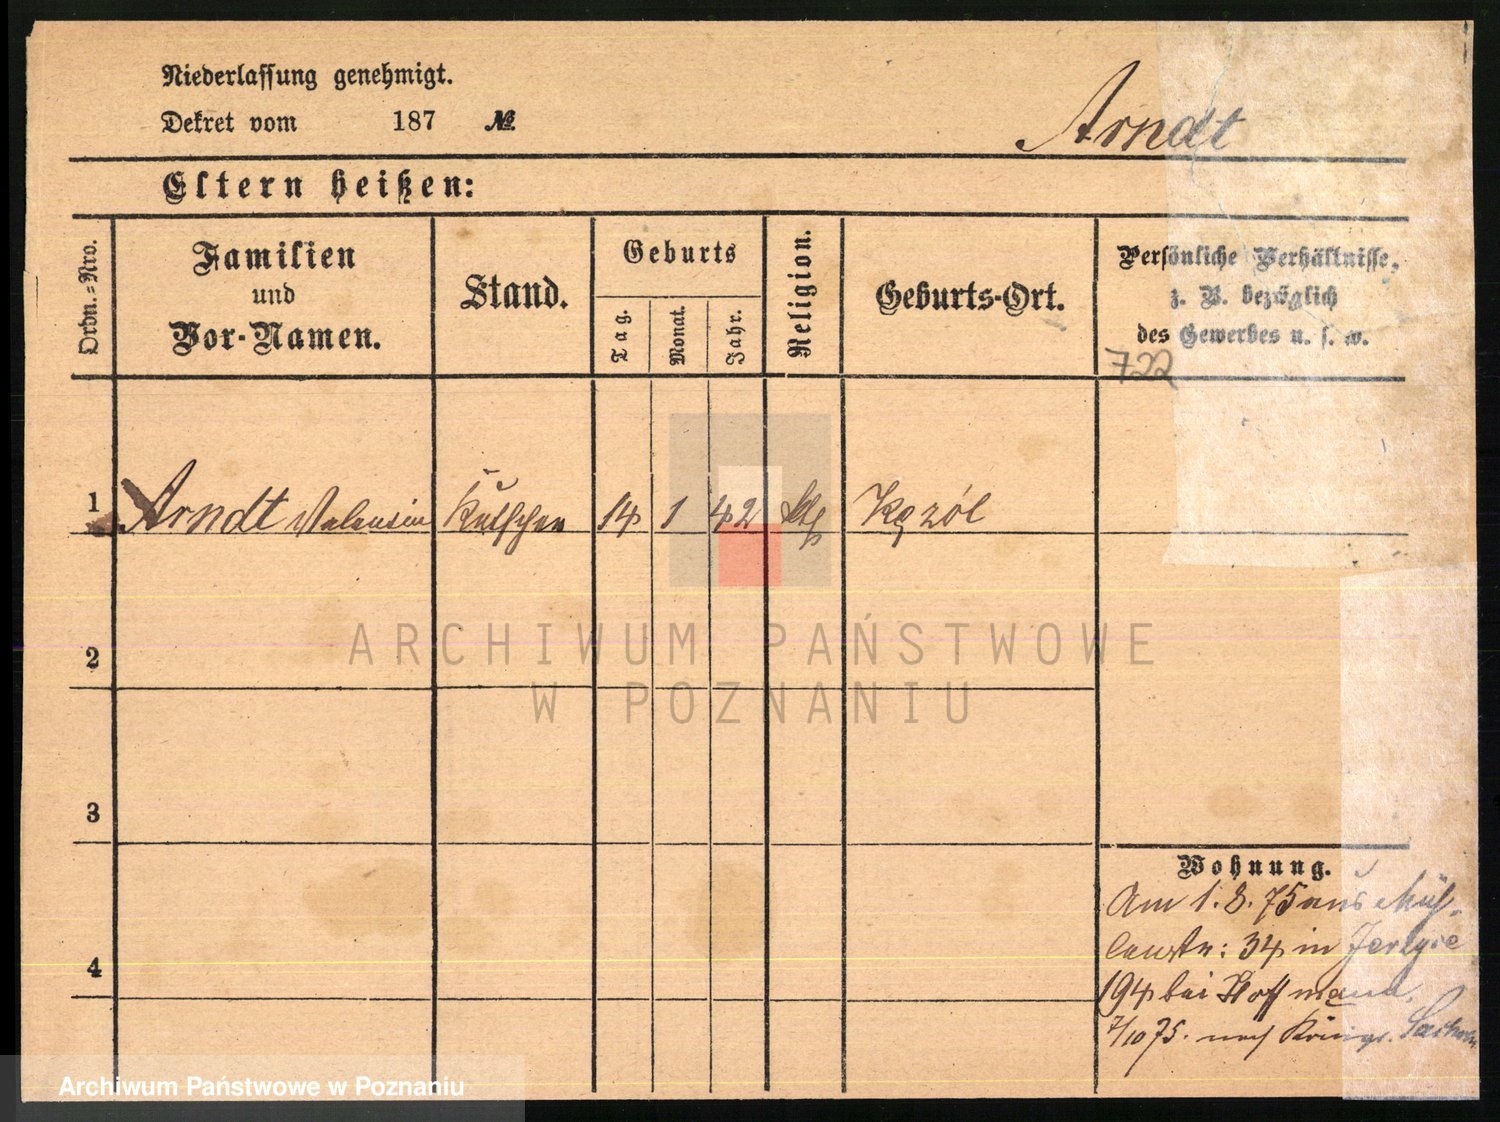 Niederlassung genehmigt.
Dekret vom 187 №
Arndt
Eltern heißen:
Ordn.-Nro.
Familien
und
Vor-Namen.
Stand.
Geburts
Tag.
Monat.
Jahr.
Religion.
Geburts-Ort.
Persönliche Verhältnisse,
z. B. bezüglich
des Gewerbes u. s. w.
722
1 Arndt Valentin Kutscher 14 1 42 kth
ARCHIWUM PAŃSTWOWE
W POZNANIU
2
3
4
Wohnung.
Am 1. 8. 75 aus Müh-
lenstr: 34 in Jerzyce
194 bei Hoffmann.
7/10 75. nach Königr. Sachsen
Archiwum Państwowe w Poznaniu